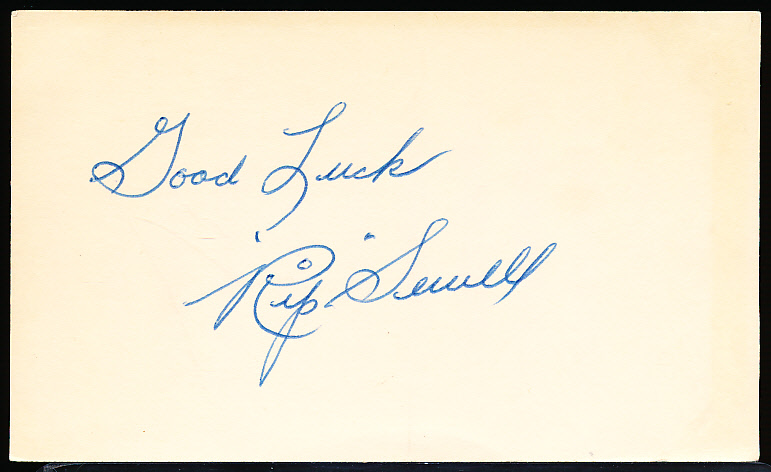 Good Luck
"Rip" Sewell